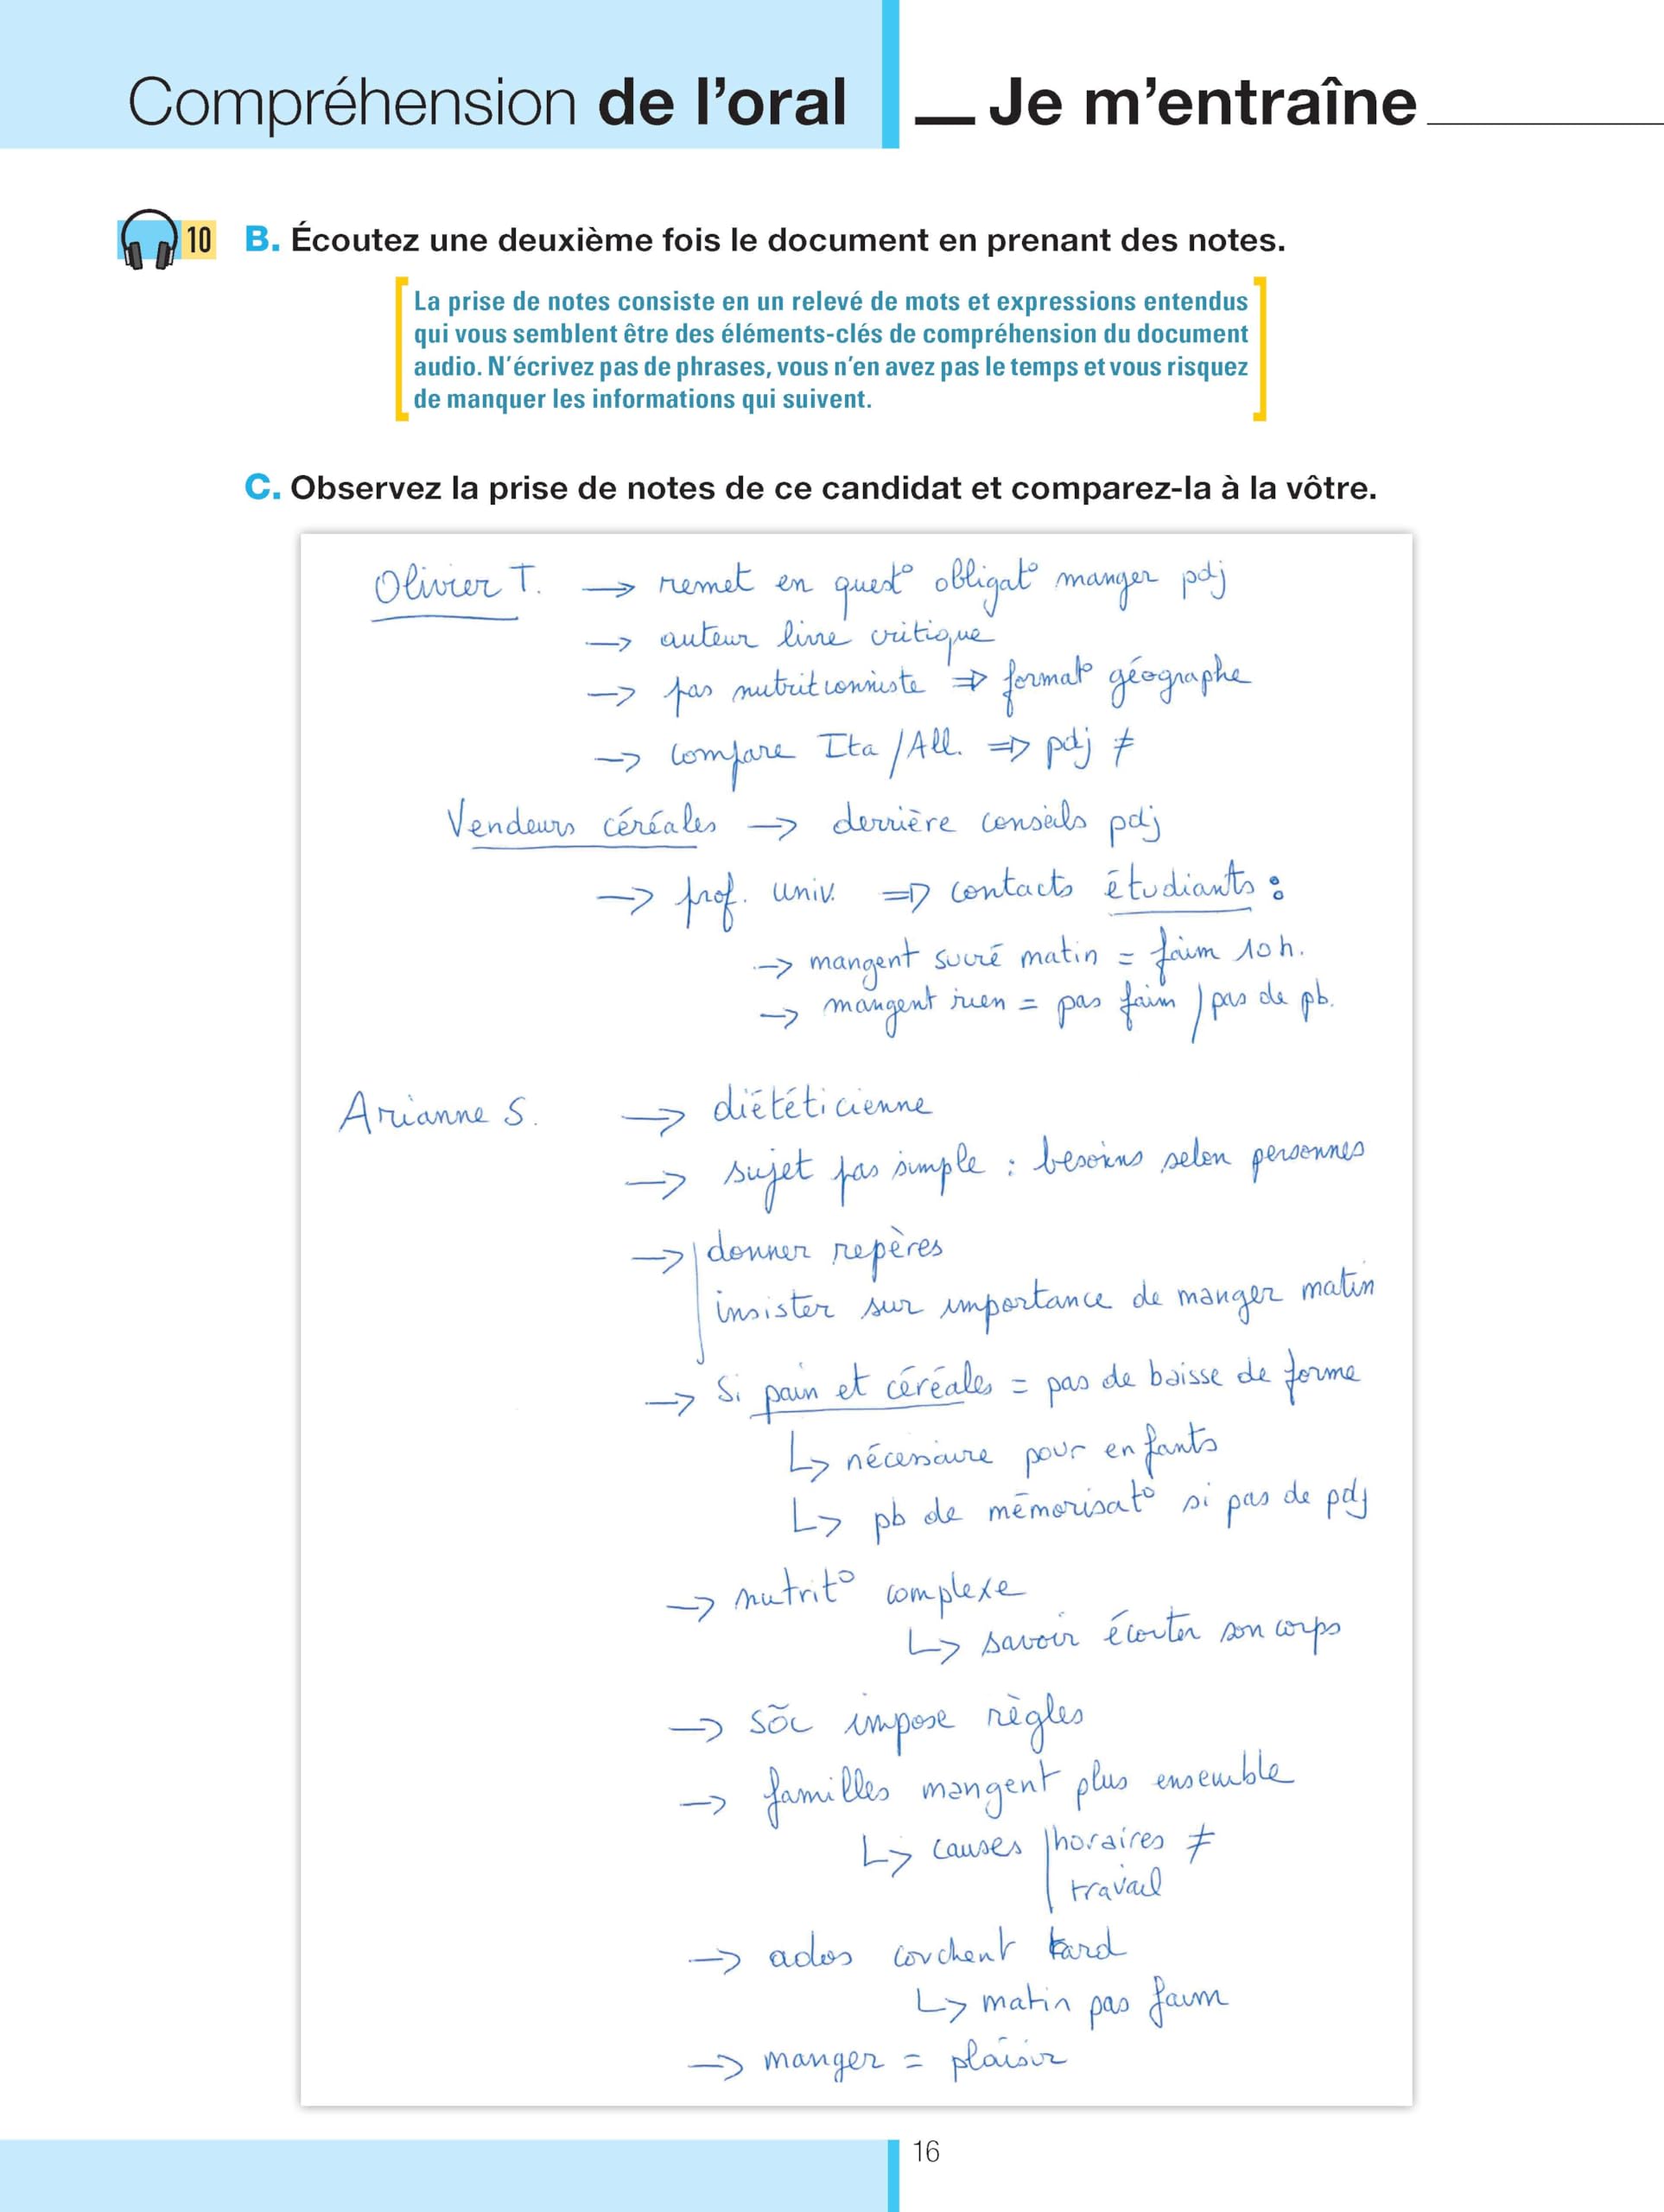 Compréhension de l'oral — Je m'entraîne
10 B. Écoutez une deuxième fois le document en prenant des notes.
La prise de notes consiste en un relevé de mots et expressions entendus
qui vous semblent être des éléments-clés de compréhension du document
audio. N'écrivez pas de phrases, vous n'en avez pas le temps et vous risquez
de manquer les informations qui suivent.
C. Observez la prise de notes de ce candidat et comparez-la à la vôtre.
Olivier T. → remet en quest° obligat° manger pdj
→ auteur livre critique
→ pas nutritionniste ⇒ format° géographe
→ compare Ita / All. ⇒ pdj ≠
Vendeurs céréales → derrière conseils pdj
→ prof. univ. ⇒ contacts étudiants :
→ mangent sucré matin = faim 10h.
→ mangent rien = pas faim / pas de pb.
Arianne S. → diététicienne
→ sujet pas simple : besoins selon personnes
→ donner repères
insister sur importance de manger matin
→ Si pain et céréales = pas de baisse de forme
↳ nécessaire pour enfants
↳ pb de mémorisat° si pas de pdj
→ nutrit° complexe
↳ savoir écouter son corps
→ sõc impose règles
→ familles mangent plus ensemble
↳ causes | horaires ≠
travail
→ ados couchent tard
↳ matin pas faim
→ manger = plaisir
16